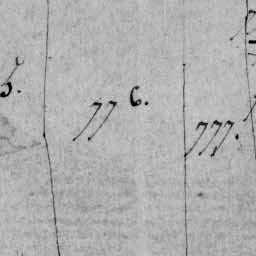 77 6.
777.